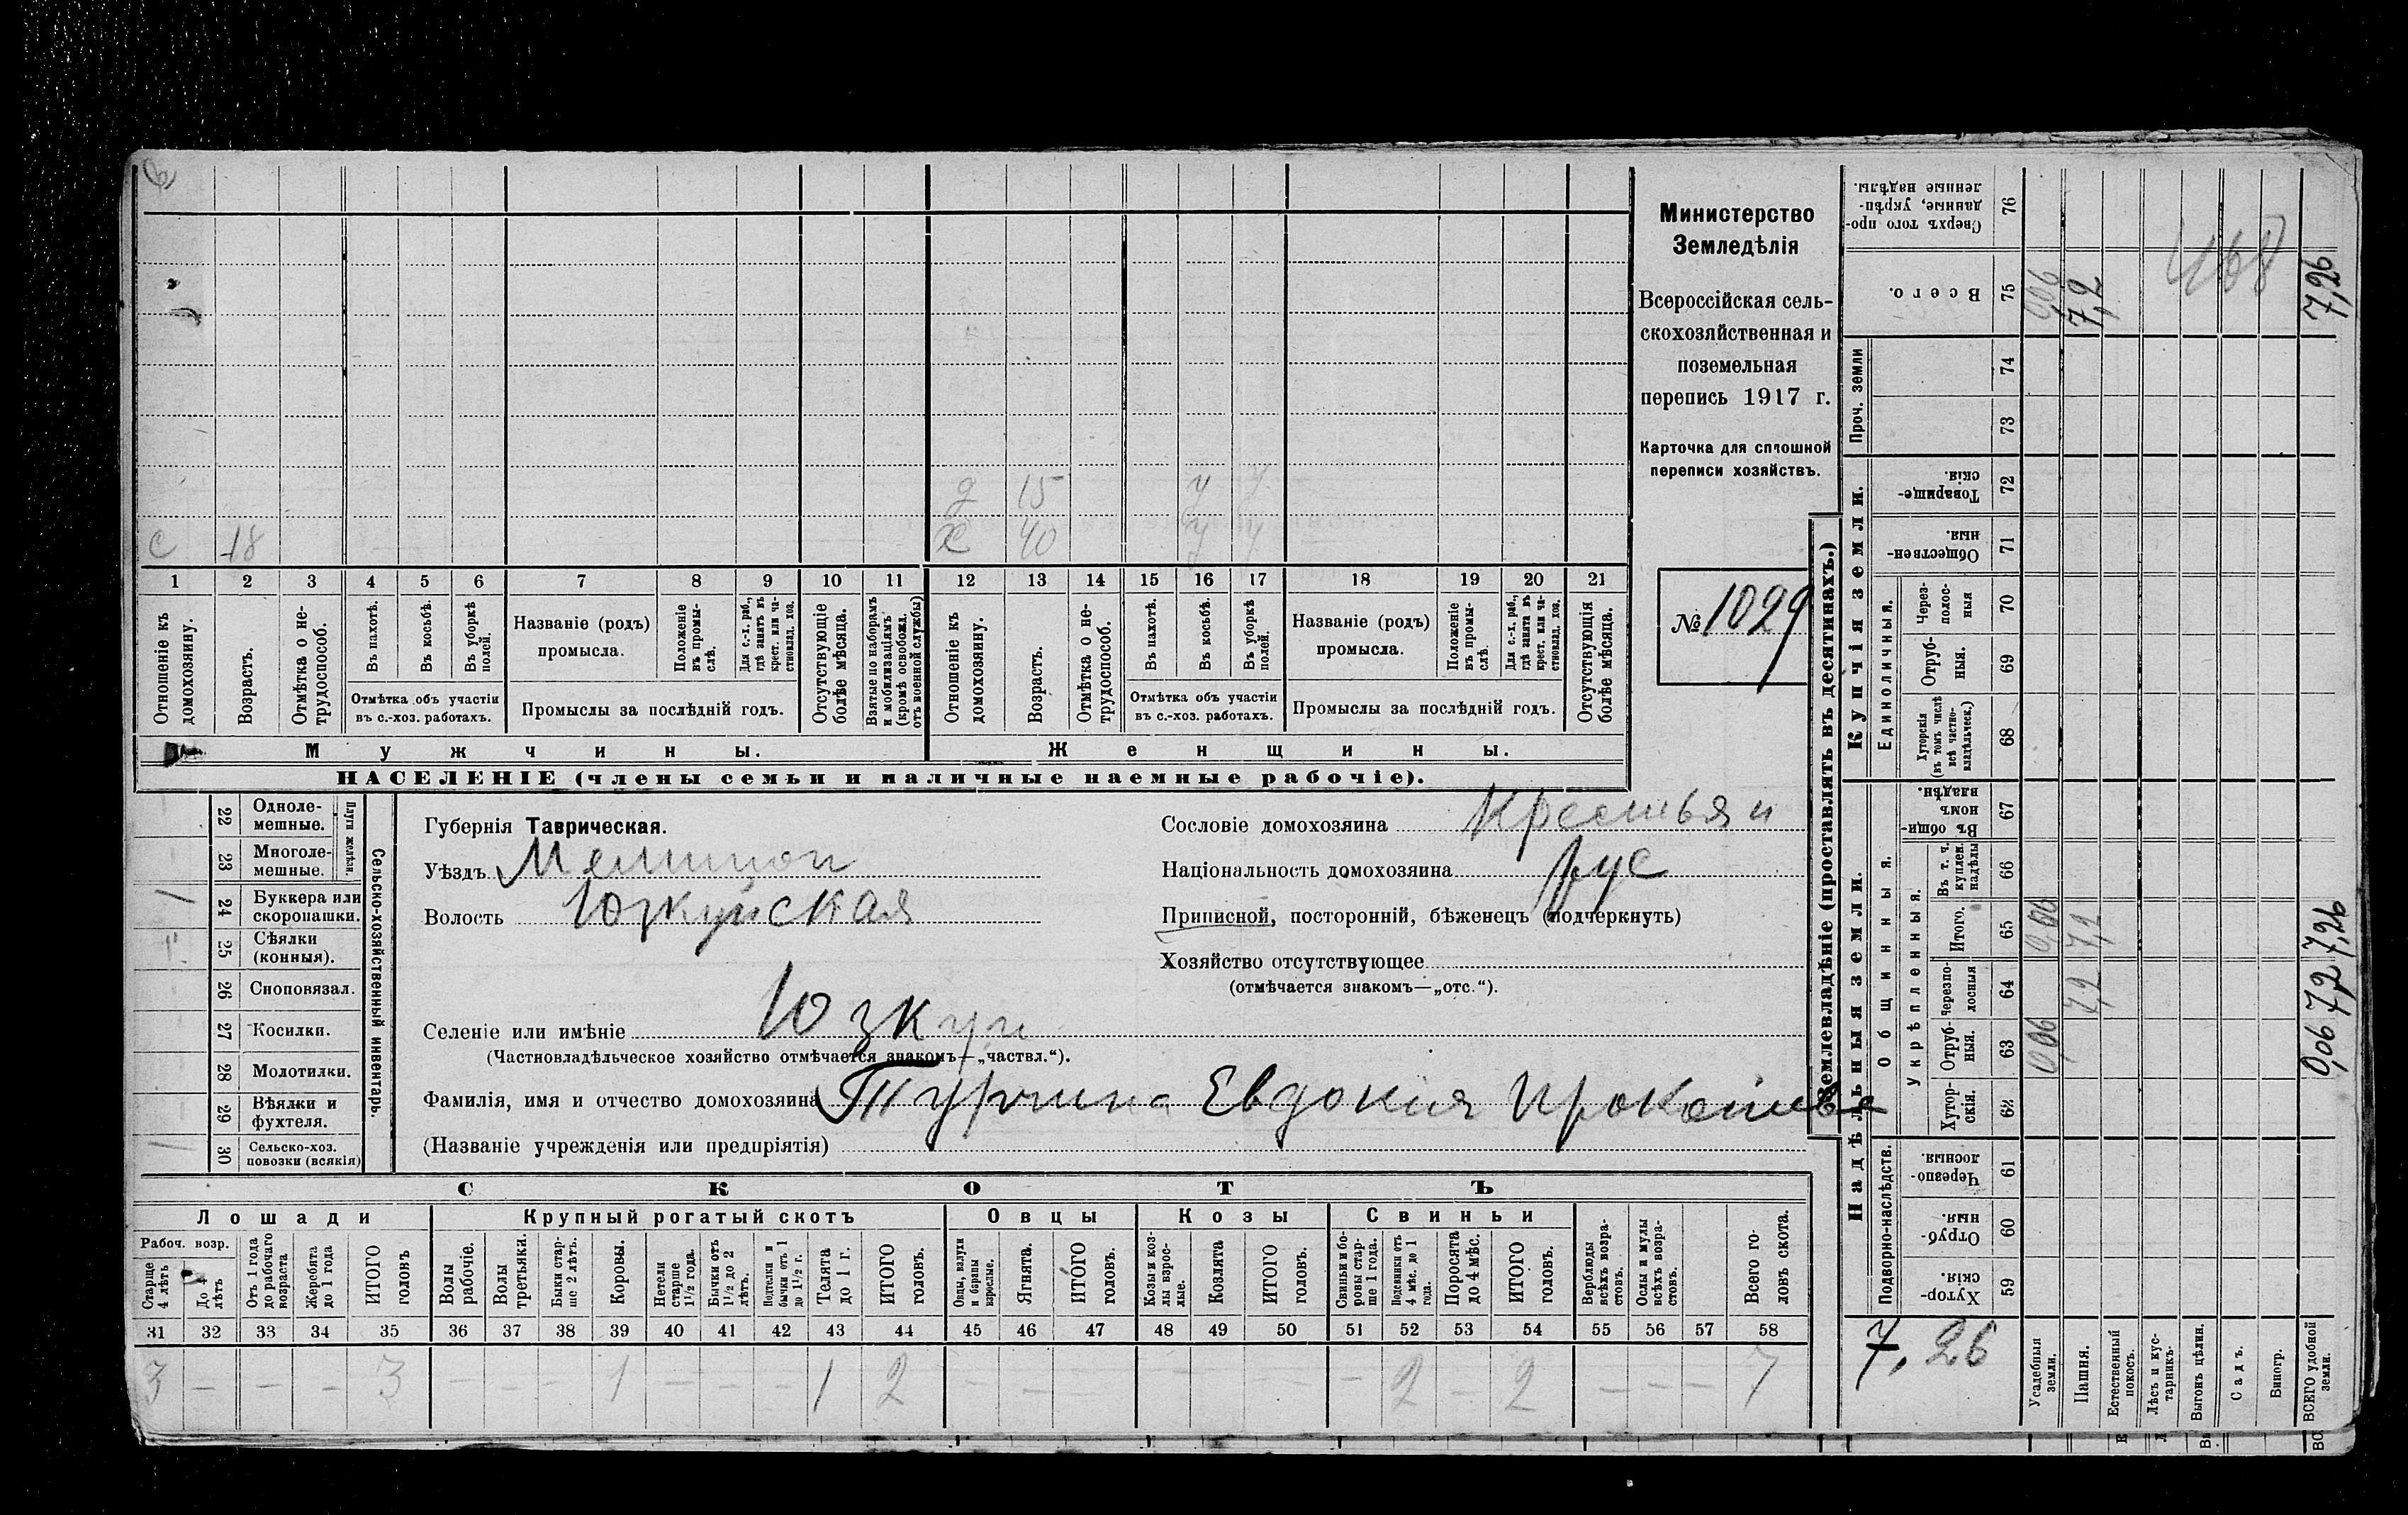 с 18
д 15 у у
х 40 у у
1 2 3 4 5 6 7 8 9 10 11 12 13 14 15 16 17 18 19 20 21
Отношеніе къ домохозяину.
Возрастъ.
Отмѣтка о не-трудоспособ.
Въ пахотѣ.
Въ косьбѣ.
Въ уборкѣ полей.
Отмѣтка объ участіи
въ с.-хоз. работахъ.
Названіе (родъ)
промысла.
Положеніе въ промы-слѣ.
Для с.-х. раб., гдѣ занятъ въ крест. или ча-стновлад. хоз.
Промыслы за послѣдній годъ.
Отсутствующіе болѣе мѣсяца.
Взятые по наборамъ и мобилизаціямъ (кромѣ освобожд. отъ военной службы)
Отношеніе къ домохозяину.
Возрастъ.
Отмѣтка о не-трудоспособ.
Въ пахотѣ.
Въ косьбѣ.
Въ уборкѣ полей.
Отмѣтка объ участіи
въ с.-хоз. работахъ.
Названіе (родъ)
промысла.
Положеніе въ промы-слѣ.
Для с.-х. раб., гдѣ занята въ крест. или ча-стновлад. хоз.
Промыслы за послѣдній годъ.
Отсутствующія болѣе мѣсяца.
Мужчины.
Женщины.
НАСЕЛЕНІЕ (члены семьи и наличные наемные рабочіе).
Министерство
Земледѣлія
Всероссійская сель-
скохозяйственная и
поземельная
перепись 1917 г.
Карточка для сплошной
переписи хозяйствъ.
№ 1029
Сельско-хозяйственный инвентарь.
Плуги желѣзн.
22 Одноле-
мешные.
23 Многоле-
мешные.
24 Буккера или
скоропашки.
25 Сѣялки
(конныя).
26 Сноповязал.
27 Косилки.
28 Молотилки.
29 Вѣялки и
фухтеля.
30 Сельско-хоз.
повозки (всякія)
Губернія Таврическая.
Уѣздъ Мелитоп
Волость Юзкуйская
Сословіе домохозяина Крестьян
Національность домохозяина рус
Приписной, посторонній, бѣженецъ (подчеркнуть)
Хозяйство отсутствующее
(отмѣчается знакомъ—„отс.“).
Селеніе или имѣніе Юзкуи
(Частновладѣльческое хозяйство отмѣчается знакомъ—„частвл.“).
Фамилія, имя и отчество домохозяина Турчина Евдокия
(Названіе учрежденія или предпріятія)
СКОТЪ
Лошади
Крупный рогатый скотъ
Овцы
Козы
Свиньи
Рабоч. возр.
Старше 4 лѣтъ
До 4 лѣтъ
Отъ 1 года до рабочаго возраста
Жеребята до 1 года
ИТОГО головъ
Волы рабочіе.
Волы третьяки.
Быки стар-ше 2 лѣтъ.
Коровы.
Нетели старше 1½ года.
Бычки отъ 1½ до 2 лѣтъ.
Подтелки и бычки отъ 1 до 1½ г.
Телята до 1 г.
ИТОГО головъ.
Овцы, валухи и бараны взрослые.
Ягнята.
ИТОГО головъ.
Козы и коз-лы взрос-лые.
Козлята
ИТОГО головъ.
Свиньи и бо-ровы стар-ше 1 года.
Подсвинки отъ 4 мѣс. до 1 года.
Поросята до 4 мѣс.
ИТОГО головъ.
Верблюды всѣхъ возра-стовъ.
Ослы и мулы всѣхъ возра-стовъ.
Всего го-ловъ скота.
31 32 33 34 35 36 37 38 39 40 41 42 43 44 45 46 47 48 49 50 51 52 53 54 55 56 57 58
3 — — — 3 — — — 1 — — — 1 2 — — — — — — — 2 — 2 — — — 7
Землевладѣніе (проставлять въ десятинахъ.)
Купчія земли.
Надѣльныя земли.
Проч. земли
Единоличныя.
Общинныя.
Укрѣпленныя.
Подворно-наслѣдств.
76 Сверхъ того про-данные, укрѣп-ленные надѣлы.
75 Всего. 0,06 7,2 7,26
74
73
72 Товарище-скія.
71 Обществен-ныя.
70 Через-полос-ныя
69 Отруб-ныя.
68 Хуторскія (въ томъ числѣ всѣ частно-владѣльческ.)
67 Въ общи-номъ владѣн.
66 Въ т. ч. куплен. надѣлы
65 Итого. 0,06 7,2 7,26
64 Черезпо-лосныя 7,2 7,2
63 Отруб-ныя. 0,06 0,06
62 Хутор-скія.
61 Черезпо-лосныя.
60 Отруб-ныя.
59 Хутор-скія.
168
7,26
Усадебныя земли.
Пашня.
Естественный покосъ.
Лѣсъ и кус-тарникъ.
Выгонъ цѣлин.
Садъ.
Виногр.
ВСЕГО удобной земли.